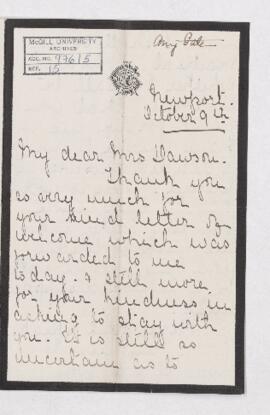 Amy Pate
McGILL UNIVERSITY
ARCHIVES
ACC. NO. 976/5
REF. 15
Newport.
October 9th
My dear Mrs Dawson.
Thank you
so very much for
your kind letter of
welcome which was
forwarded to me
today. & still more
for your kindness in
asking to stay with
you. It is still so
uncertain as to